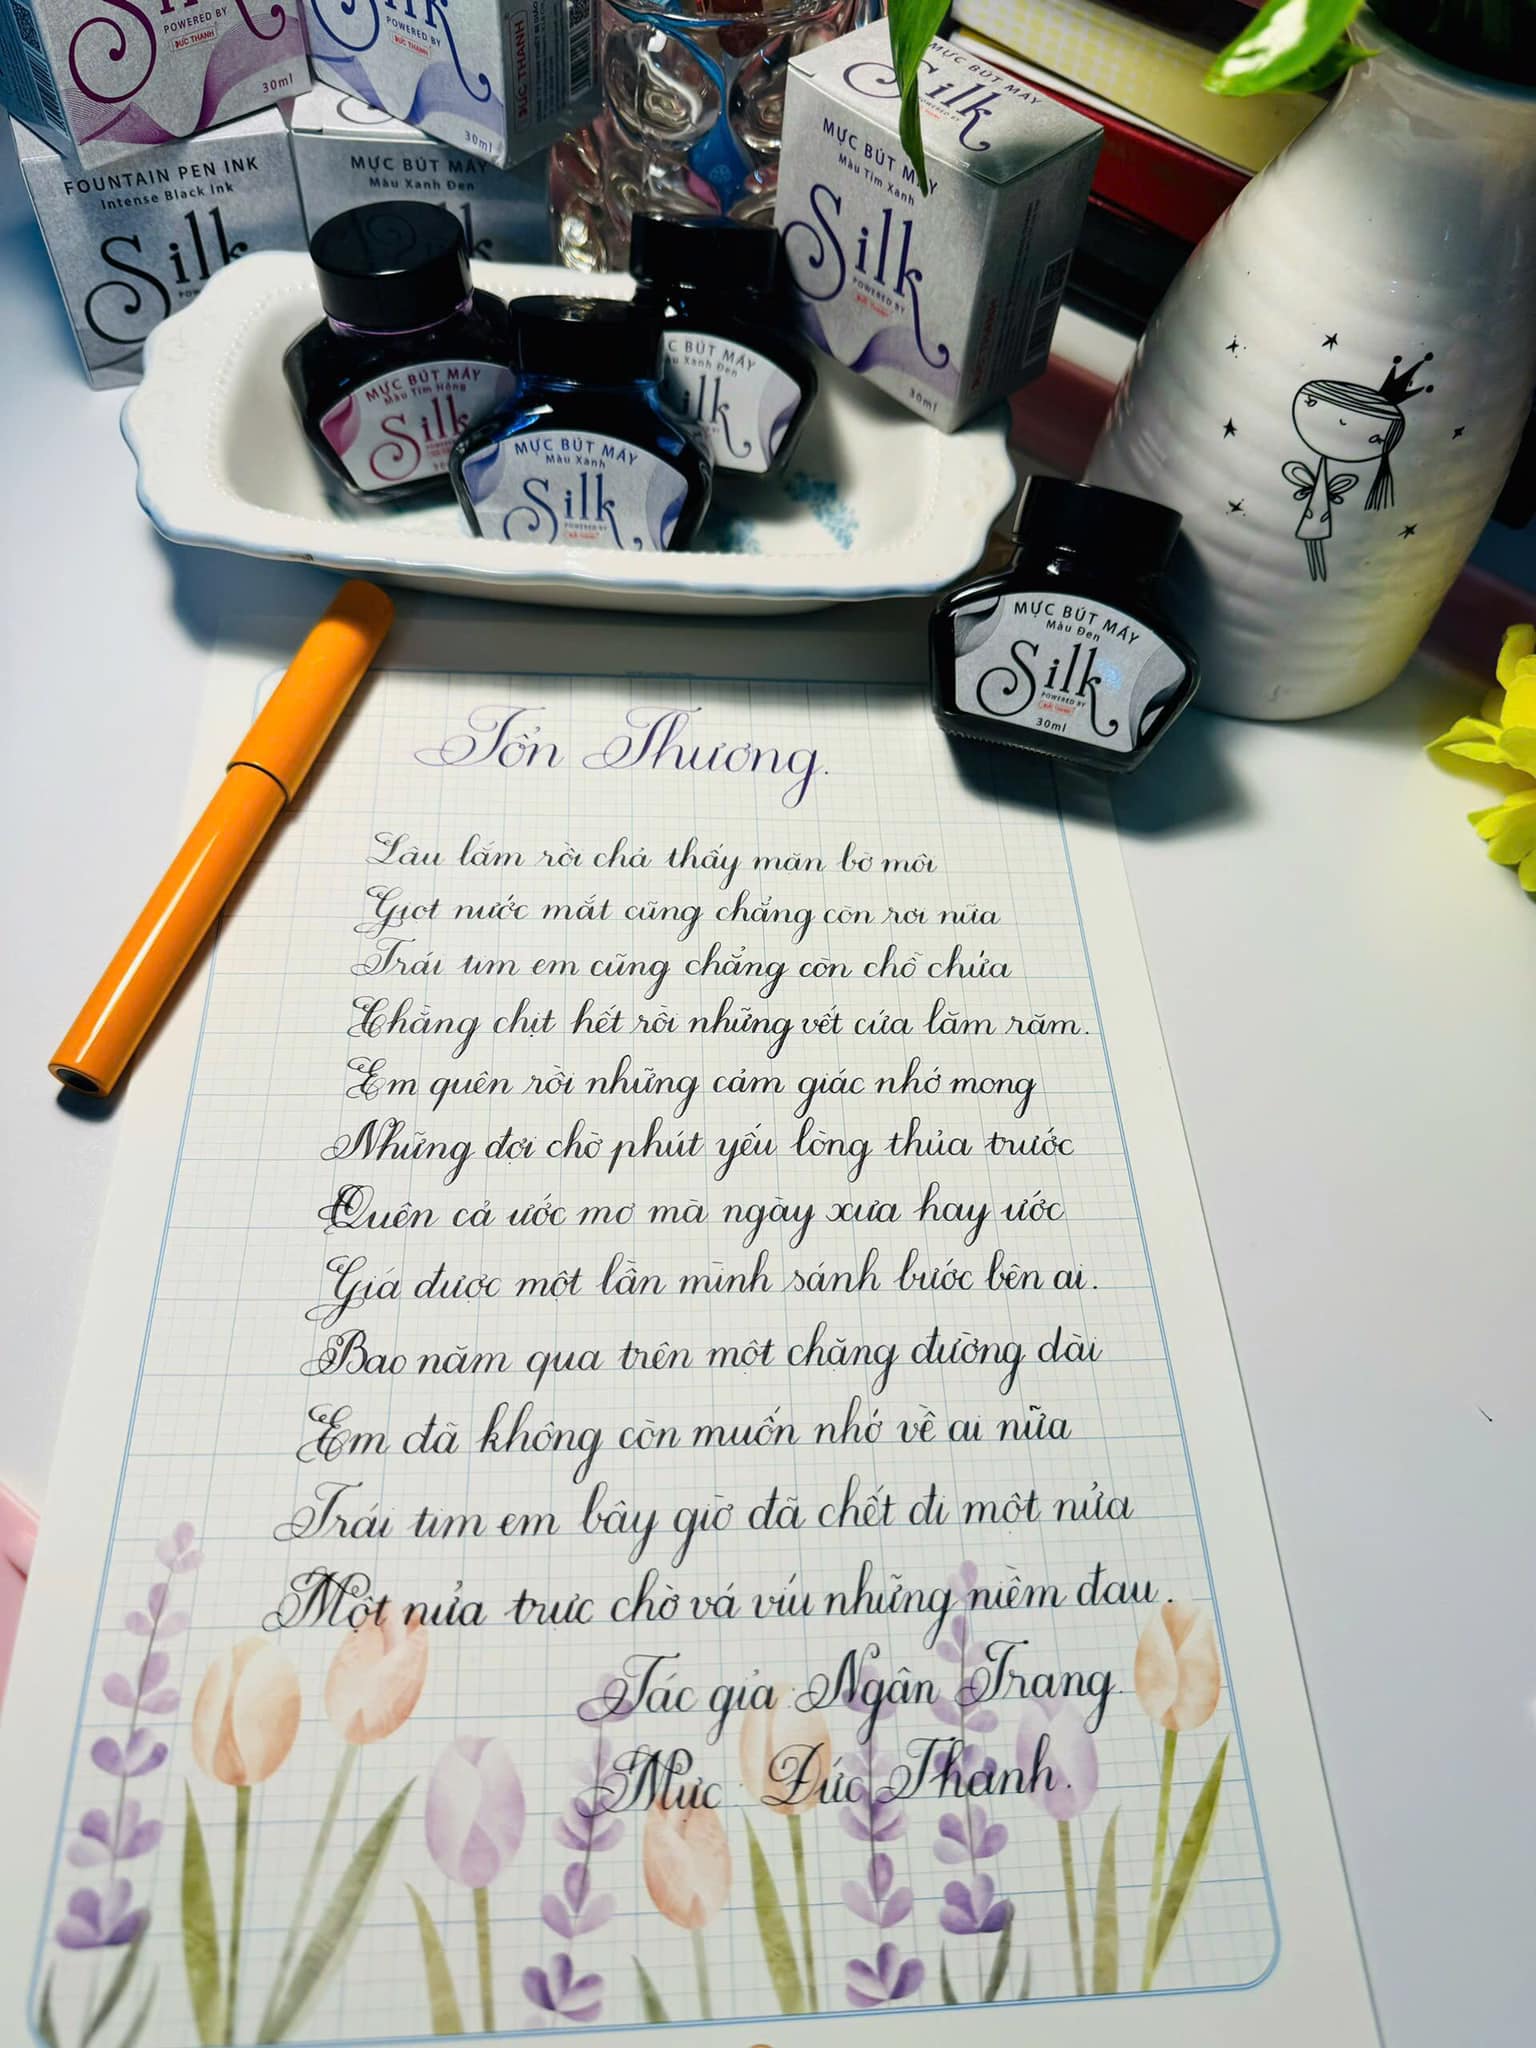 Silk
POWERED BY
ĐỨC THANH
30ml
Silk
POWERED BY
ĐỨC THANH
30ml
ĐỨC THANH
FOUNTAIN PEN INK
Intense Black Ink
Silk
MỰC BÚT MÁY
Màu Xanh Đen
MỰC BÚT MÁY
Silk
MỰC BÚT MÁY
Màu Tím Xanh
Silk
POWERED BY
ĐỨC THANH
30ml
ĐỨC THANH
MỰC BÚT MÁY
Màu Tím Hồng
Silk
MỰC BÚT MÁY
Màu Xanh
Silk
POWERED BY
ĐỨC THANH
C BÚT MÁY
Xanh Đen
ilk
MỰC BÚT MÁY
Màu Đen
Silk
POWERED BY
ĐỨC THANH
30ml
Tổn Thương.
Lâu lắm rồi chả thấy mặn bờ môi
Giọt nước mắt cũng chẳng còn rơi nữa
Trái tim em cũng chẳng còn chỗ chứa
Chằng chịt hết rồi những vết cứa lăm răm.
Em quên rồi những cảm giác nhớ mong
Những đợi chờ phút yếu lòng thủa trước
Quên cả ước mơ mà ngày xưa hay ước
Giá được một lần mình sánh bước bên ai.
Bao năm qua trên một chặng đường dài
Em đã không còn muốn nhớ về ai nữa
Trái tim em bây giờ đã chết đi một nửa
Một nửa trực chờ vá víu những niềm đau.
Tác giả Ngân Trang.
Mực : Đức Thanh.